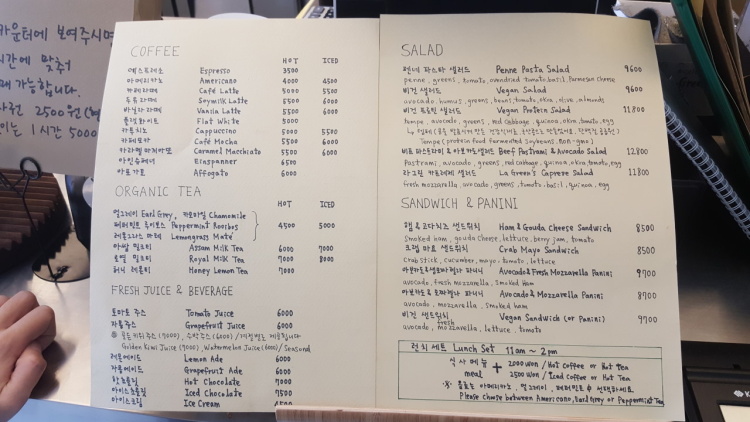 카운터에 보여주시면
시간에 맞춰
가능합니다.
2500원
1시간 5000
COFFEE
HOT ICED
에스프레소 Espresso 3500
아메리카노 Americano 4000 4500
카페라떼 Café Latte 5000 5500
두유라떼 Soymilk Latte 5500 6000
바닐라라떼 Vanilla Latte 5500 6000
플랫화이트 Flat White 5000
카푸치노 Cappuccino 5000 5500
카페모카 Café Mocha 5500 6000
카라멜마끼아또 Caramel Macchiato 5500 6000
아인슈페너 Einspanner 6500
아포가토 Affogato 6000
ORGANIC TEA
HOT ICED
얼그레이 Earl Grey, 카모마일 Chamomile
페퍼민트 루이보스 Peppermint Rooibos 4500 5000
레몬그라스 마테 Lemongrass Maté
아쌈 밀크티 Assam Milk Tea 6000 7000
로열 밀크티 Royal Milk Tea 7000 8000
허니 레몬티 Honey Lemon Tea 7000
FRESH JUICE & BEVERAGE
토마토 주스 Tomato Juice 6000
자몽주스 Grapefruit Juice 7000
골든키위주스 (7000), 수박주스 (6000) / 계절별로
Golden Kiwi Juice (7000), Watermelon Juice (6000) / Seasonal
레몬에이드 Lemon Ade 6000
자몽에이드 Grapefruit Ade 6000
핫초콜릿 Hot Chocolate 7000
아이스초콜릿 Iced Chocolate 7500
아이스크림 Ice Cream 4500
SALAD
펜네 파스타 샐러드 Penne Pasta Salad 9600
penne, greens, tomato, sundried tomato, basil, Parmesan cheese
비건 샐러드 Vegan Salad 9600
avocado, humus, greens, beans, tomato, okra, olive, almonds
비건 프로틴 샐러드 Vegan Protein Salad 11800
tempe, avocado, greens, red cabbage, quinoa, okra, tomato, egg
Tempe (protein food fermented soybeans, non-gmo)
비프 파스트라미 & 아보카도샐러드 Beef Pastrami & Avocado Salad 12800
Pastrami, avocado, greens, red cabbage, quinoa, okra, tomato, egg
라그린 카프레제 샐러드 La Green's Caprese Salad 11800
fresh mozzarella, avocado, greens, tomato, basil, quinoa, egg
SANDWICH & PANINI
햄 & 고다치즈 샌드위치 Ham & Gouda Cheese Sandwich 8500
Smoked ham, gouda cheese, lettuce, berry jam, tomato
크랩 마요 샌드위치 Crab Mayo Sandwich 8500
Crab stick, cucumber, mayo, tomato, lettuce
아보카도 & 생모짜렐라 파니니 Avocado & Fresh Mozzarella Panini 9700
avocado, fresh mozzarella, Smoked Ham
아보카도 & 모짜렐라 파니니 Avocado & Mozzarella Panini 8700
avocado, mozzarella, smoked ham
비건 샌드위치 Vegan Sandwich (or Panini) 9700
avocado, fresh mozzarella, lettuce, tomato
런치 세트 Lunch Set 11am ~ 2pm
식사 메뉴 + 2000 won / Hot Coffee or Hot Tea
meal 2500 won / Iced Coffee or Hot Tea
※ 음료는 아메리카노, 얼그레이, 페퍼민트 中 선택하세요.
Please choose between Americano, Earl Grey or Peppermint Tea